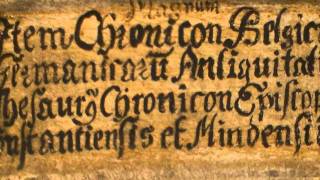 Magnum
Item Chronicon Belgic
Germanicarũ Antiquitati
Thesaurꝰ Chronicon Episcop
onstantiensis et Mindensi